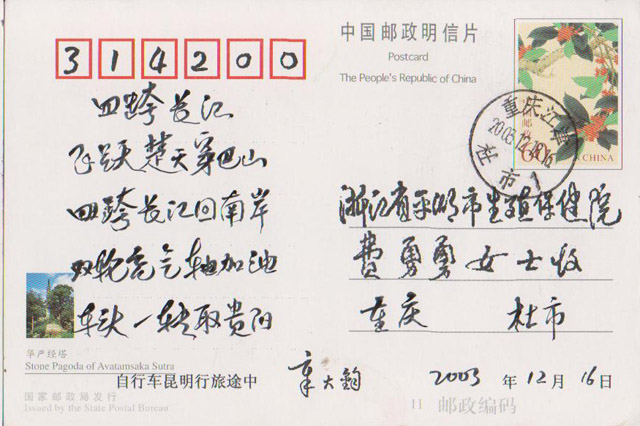 314200
中国邮政明信片
Postcard
The People's Republic of China
重庆江津
杜市
1
CHINA
四跨长江
飞跃楚天穿巴山
四跨长江回南岸
双轮充气轴加油
车头一转取贵阳
浙江省平湖市生殖保健院
费勇勇女士收
重庆 杜市
华严经塔
Stone Pagoda of Avatamsaka Sutra
自行车昆明行旅途中 章大钧 2003 年 12 月 16 日
国家邮政局发行
Issued by the State Postal Bureau
11 邮政编码